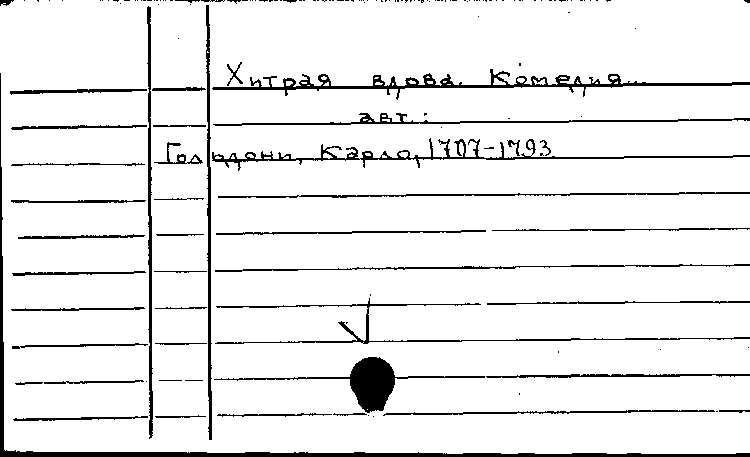 Хитрая вдова. Комедия...
авт.:
Гольдони, Карло, 1707-1793